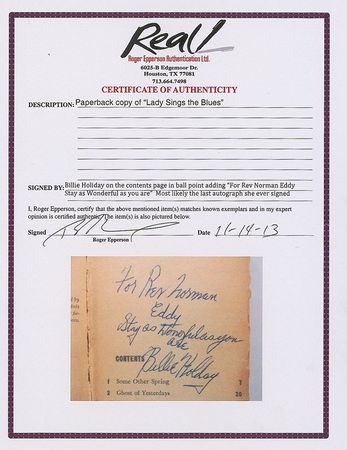 Real!
Roger Epperson Authentication Ltd.
6025-B Edgemoor Dr.
Houston, TX 77081
713.664.7498
CERTIFICATE OF AUTHENTICITY
DESCRIPTION: Paperback copy of "Lady Sings the Blues"
SIGNED BY: Billie Holiday on the contents page in ball point adding "For Rev Norman Eddy
Stay as Wonderful as you are" Most likely the last autograph she ever signed
I, Roger Epperson, certify that the above mentioned item(s) matches known exemplars and in my expert
opinion is certified authentic. The item(s) is also pictured below.
Signed Date 11-14-13
Roger Epperson
For Rev Norman
Eddy
Stay as Wonderful as you
are
CONTENTS Billie Holiday
1 Some Other Spring 7
2 Ghost of Yesterdays 20